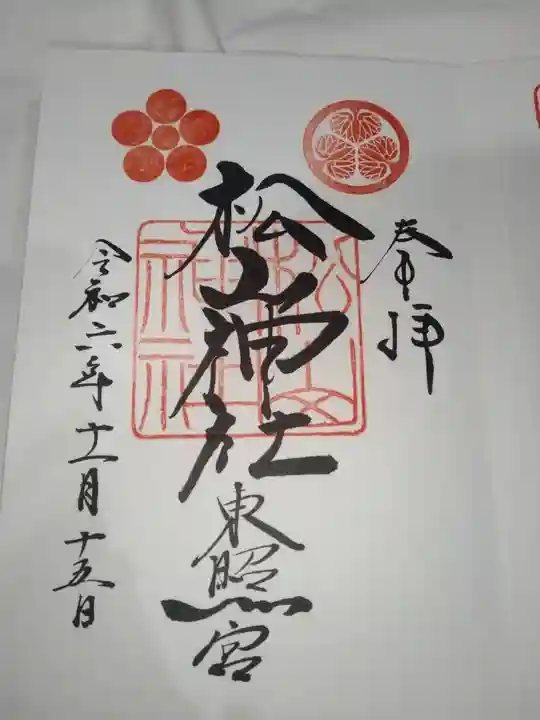 奉拝
松山神社
東照宮
令和六年十一月十五日